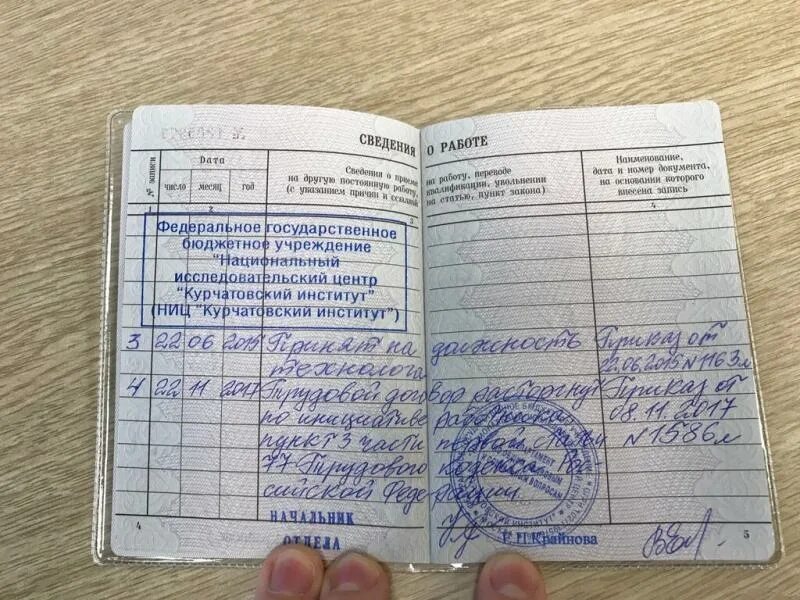 СВЕДЕНИЯ О РАБОТЕ
№ записи
Дата
число
месяц
год
Сведения о приеме на работу, переводе
на другую постоянную работу, квалификации, увольнении
(с указанием причин и ссылкой на статью, пункт закона)
Наименование,
дата и номер документа,
на основании которого
внесена запись
1
2
3
4
Федеральное государственное
бюджетное учреждение
"Национальный
исследовательский центр
"Курчатовский институт"
(НИЦ "Курчатовский институт")
3 22 06 2015 Принят на должность Приказ от
технолога 22.06.2015 N1163л
4 22 11 2017 Трудовой договор расторгнут Приказ от
по инициативе работника 08.11.2017
пункт 3 части первой статьи N1586л
77 Трудового кодекса Рос-
сийской Федерации
НАЧАЛЬНИК
ОТДЕЛА
Е.П.Крайнова
4
5